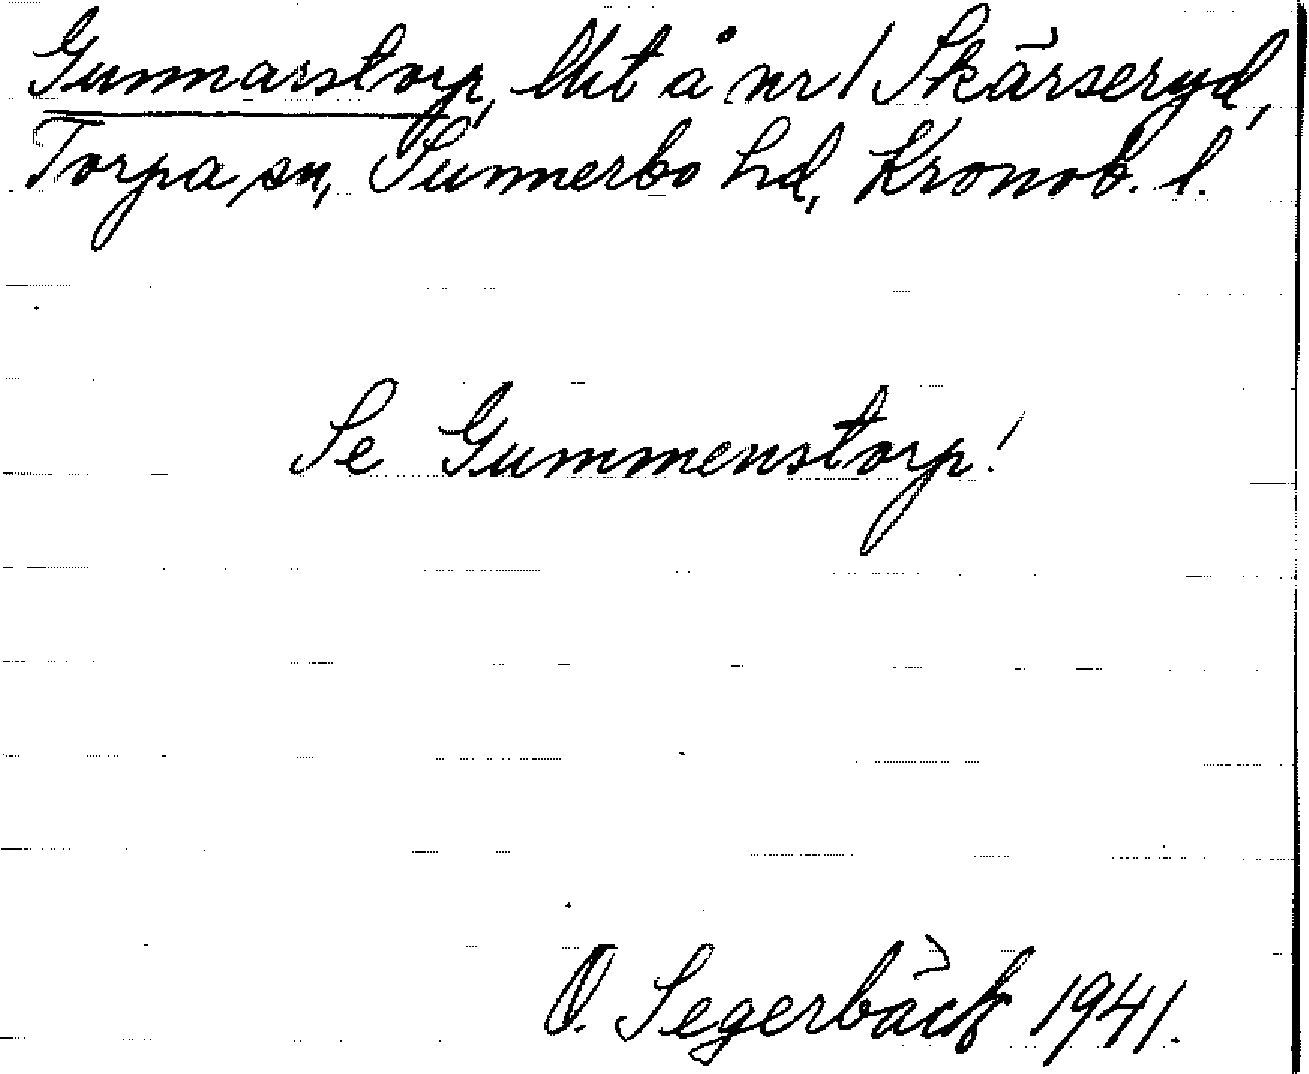 Gunnarstorp, lht å nr 1 Skärseryd,
Torpa sn, Sunnerbo hd, Kronob. l.
Se Gummenstorp!
O. Segerbäck 1941.